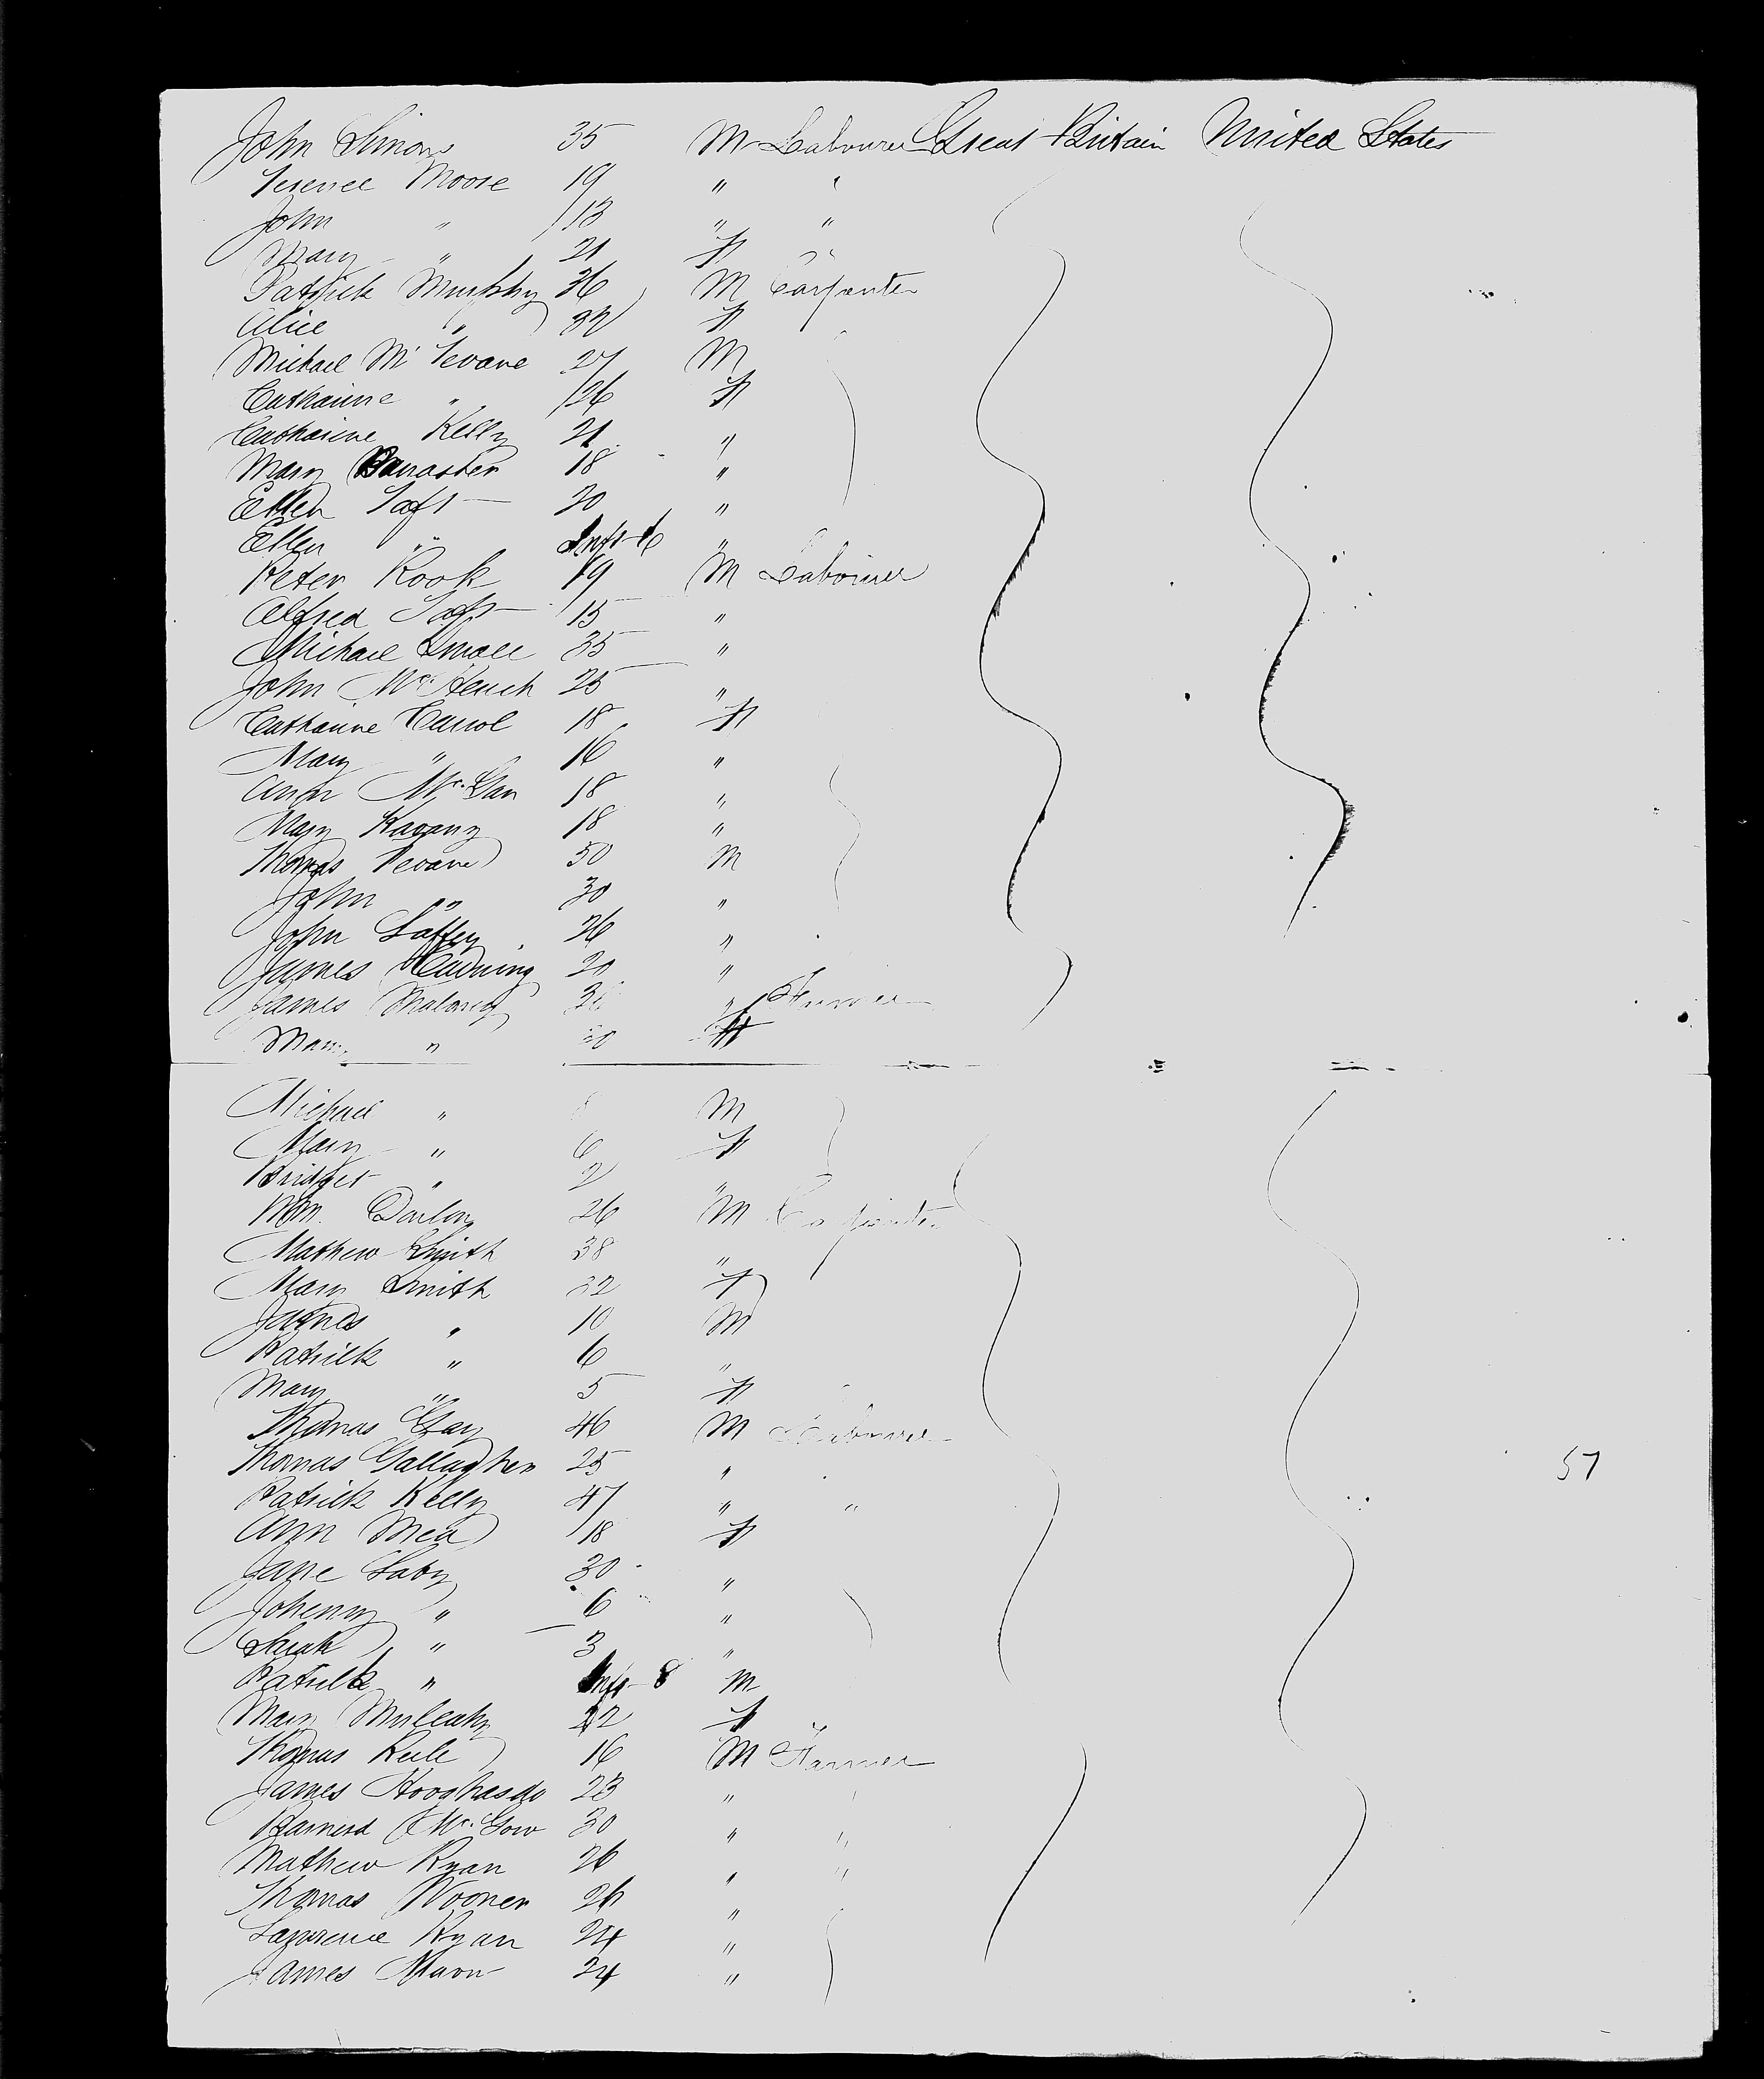 John Simons 35 M Labourer Great Britain United States
Terence Moore 19 " "
John " 13 " "
Mary " 21 F "
Patrick Murphy 36 M Carpenter
Alice " 32 F
Michael Mc Tevane 27 M
Catharine " 26 F
Catharine Kelly 21 "
Mary 18 "
Ellen Taft 20 "
Ellen " Inft 6 "
Peter Rook 19 M Labourer
Alfred Taft 15 "
Michael Small 35 "
John Mc 25 "
Catharine Carrol 18 F
Mary " 16 "
Ann Mc Gan 18 "
Mary Kavany 18 "
Thomas Tevane 50 M
John " 30 "
John Laffey 26 "
James 20 "
James Maloney " Farmer
Mary " 30 F
Michael " M
Mary " 6 F
Bridget " 2 "
Wm. Donlon 26 M Carpenter
Mathew Smith 38 "
Mary Smith 32 F
James " 10 M
Patrick " 6 "
Mary " 5 F
Thomas Gay 46 M Labourer
Thomas Gallagher 25 "
57
Patrick Kelly 47 " "
Ann Mea 18 F
Jane Laby 30 "
Johenny " 6 "
Sarah " 3 "
Patrick " Inft 8 M
Mary Mulcahy 22 F
Thomas 16 M Farmer
James 23 " "
Barnerd Mc. Gow 30 " "
Mathew Ryan 26 " "
Thomas 26 "
Lawrence Ryan 24 "
James 24 "